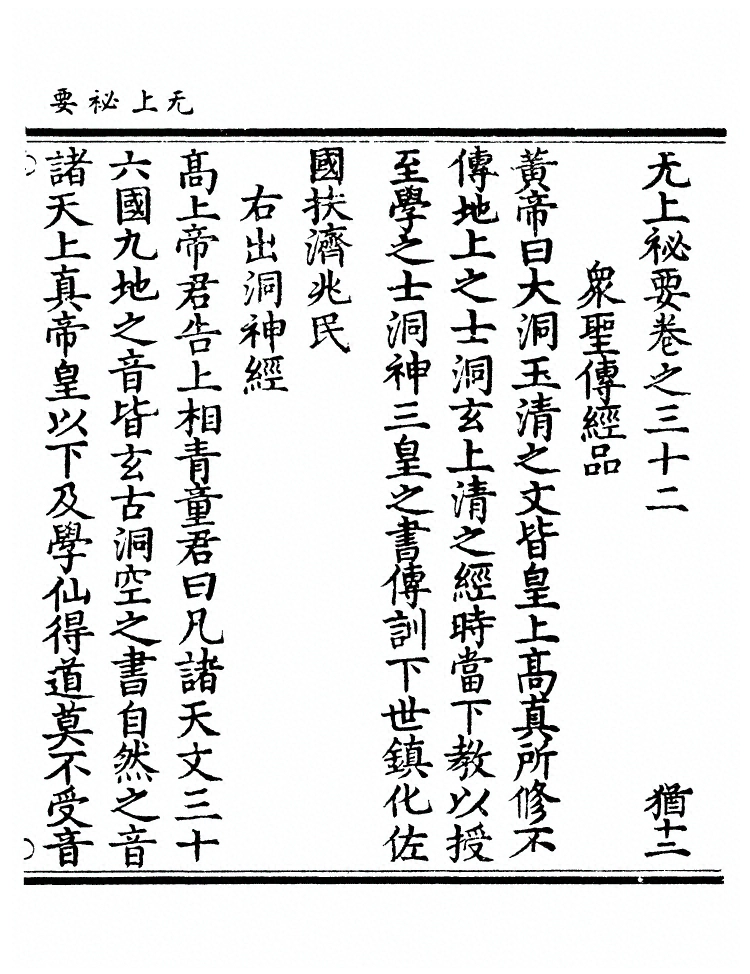 无上祕要
无上祕要卷之三十二 猶十二
衆聖傳經品
黃帝曰大洞玉清之文皆皇上高真所修不
傳地上之士洞玄上清之經時當下教以授
至學之士洞神三皇之書傳訓下世鎮化佐
國扶濟兆民
右出洞神經
高上帝君告上相青童君曰凡諸天文三十
六國九地之音皆玄古洞空之書自然之音
諸天上真帝皇以下及學仙得道莫不受音